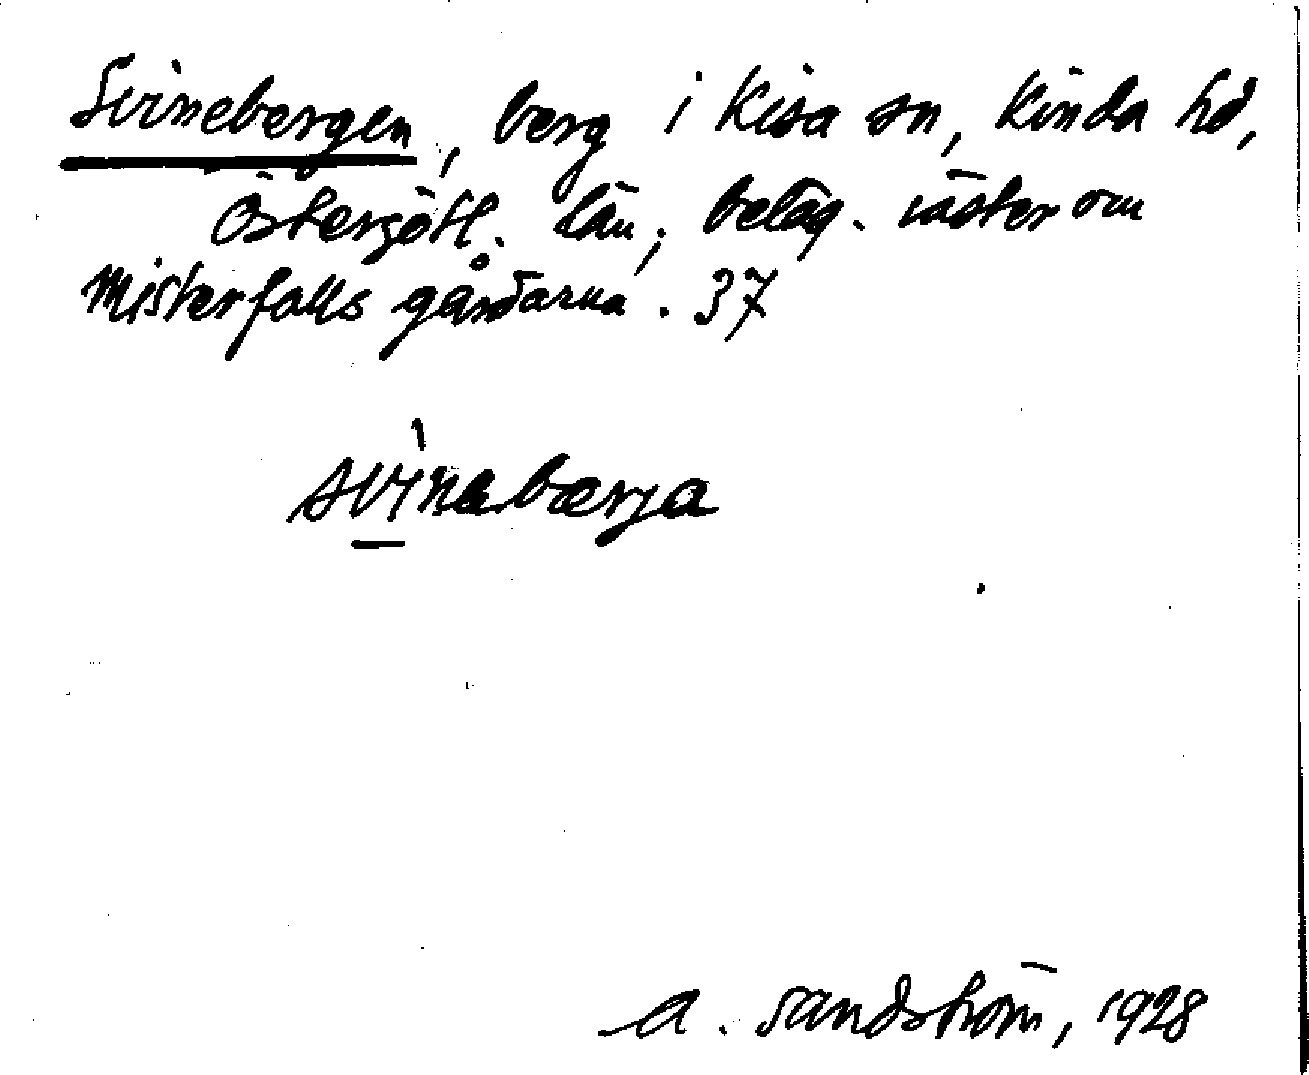 Svinebergen, berg i Kisa sn, Kinda hd,
Östergötl. län; beläg. väster om
Misterfalls gårdarna. 37
svìnabærja
A. Sandström, 1928